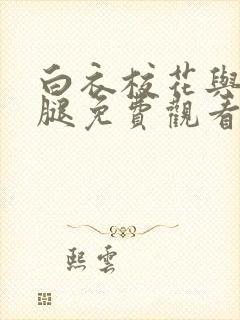 白衣校花與
腿免費觀看
熙雲